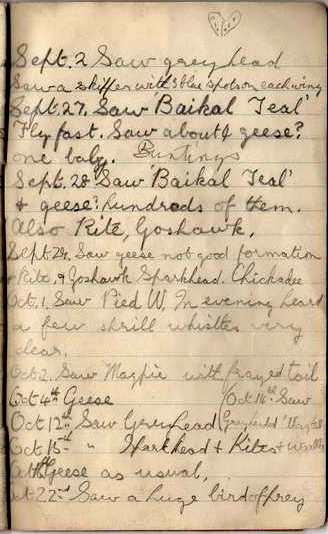 Sept. 2 Saw greyhead
Saw a skipper with 3 blue spots on each wing
Sept. 27. Saw 'Baikal Teal'
Fly fast. Saw about 4 geese?
one baby. Buntings
Sept. 28 Saw 'Baikal Teal'
+ geese? hundreds of them.
Also Kite, Goshawk.
Sept 29. Saw geese not good formation
+ Kite, + Goshawk Sparkhead. Chickadee
Oct. 1. Saw Pied W. In evening heard
a few shrill whistles very
clear.
Oct 2. Saw Magpie with frayed tail
Oct 4th Geese
Oct 14th Saw
Oct 12th Saw Greyhead
Greyheaded Wagtail
Oct 15th " Sparkhead + Kites +
Oct Geese as usual,
Oct 22nd Saw a huge bird of prey